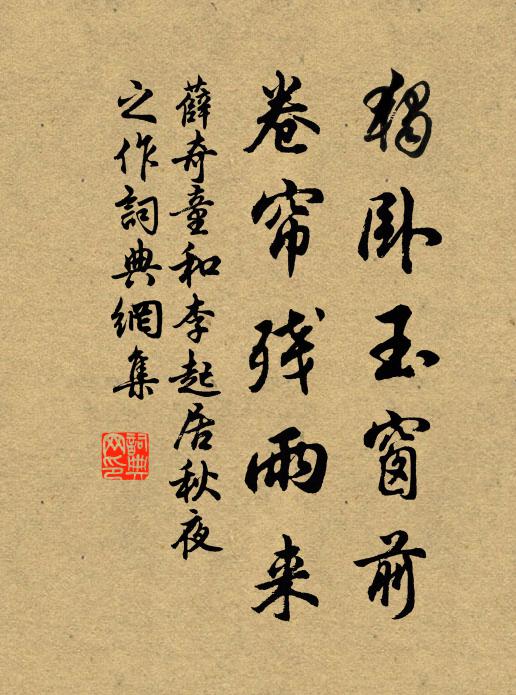 獨卧玉窗前
卷帘残雨来
薛奇童和李起居秋夜
之作詞典網集
詞典網印